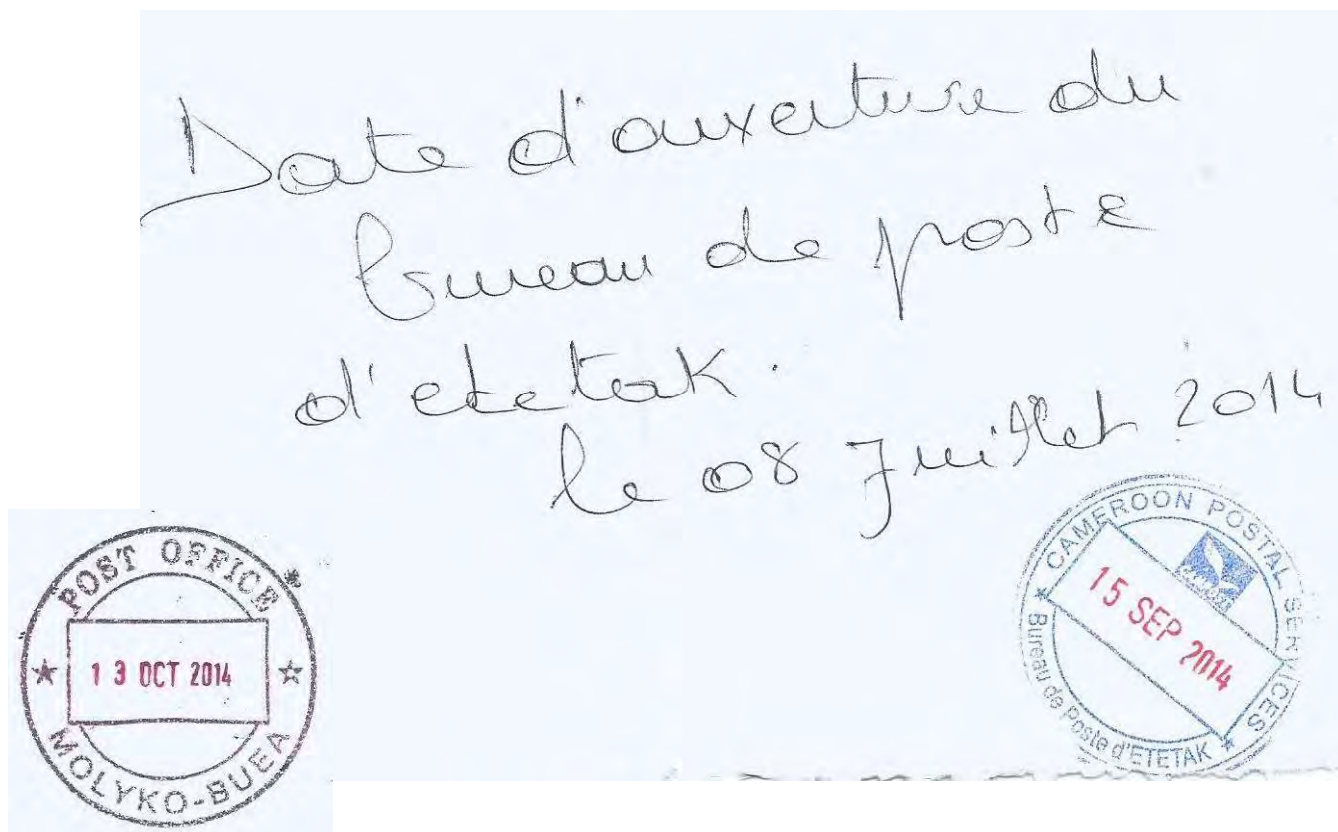 Date d'ouverture du
bureau de poste
d'etetak.
le 08 Juillet 2014
POST OFFICE
13 OCT 2014
MOLYKO-BUEA
CAMEROON POSTAL SERVICES
15 SEP 2014
Bureau de Poste d'ETETAK